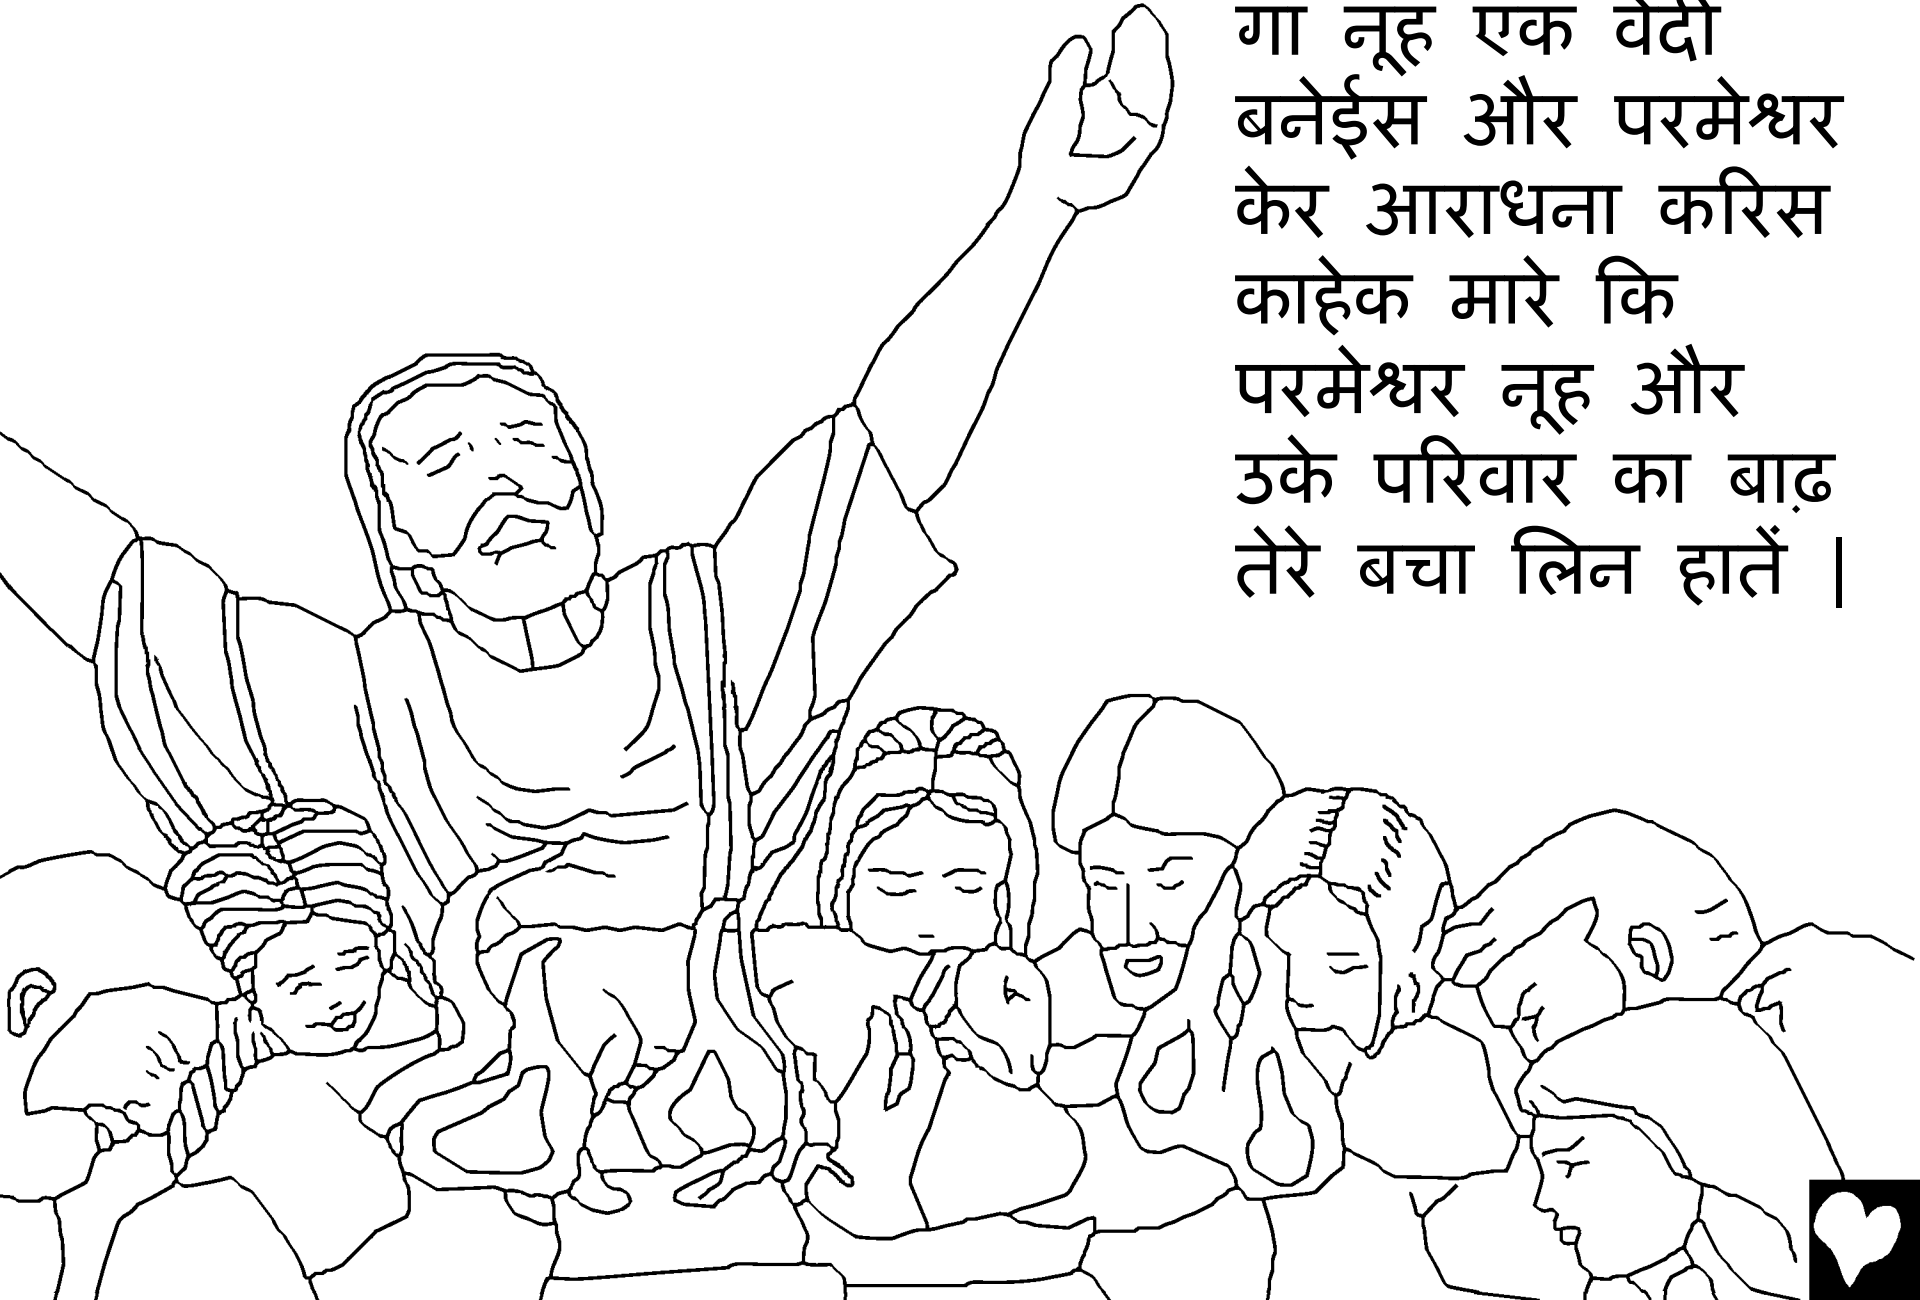 गा नूह एक वेदी
बनेईस और परमेश्वर
केर आराधना करिस
काहेक मारे कि
परमेश्वर नूह और
उके परिवार का बाढ़
तेरे बचा लिन हातें |